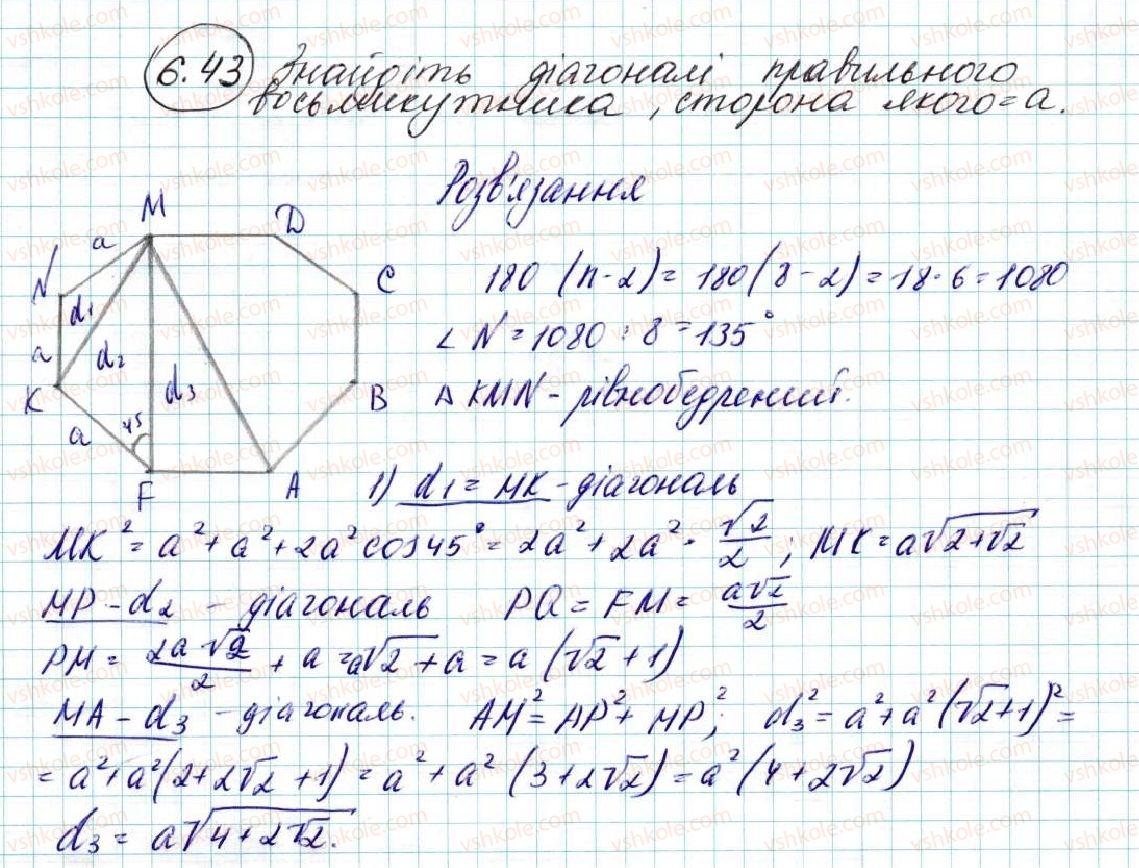 6.43 Знайдіть діагоналі правильного
восьмикутника, сторона якого = a.
Розв'язання
M
D
a
N
C
d₁
180 (n-2) = 180(8-2) = 18·6 = 1080
∠N = 1080 : 8 = 135°
a
d₂
d₃
K
B
Δ KMN - рівнобедрений.
a
45
F
A
1) d₁ = MK - діагональ
MK² = a² + a² + 2a² cos 45° = 2a² + 2a² · √2/2 ; MK = a√(2+√2)
MP - d₂ - діагональ PQ = FM = a√2/2
PM = 2a√2/2 + a = a√2 + a = a (√2 + 1)
MA - d₃ - діагональ. AM² = AP² + MP²; d₃² = a² + a²(√2+1)² =
= a² + a²(2+2√2 + 1) = a² + a² (3+2√2) = a² (4+2√2)
d₃ = a√(4+2√2).
vshkole.com